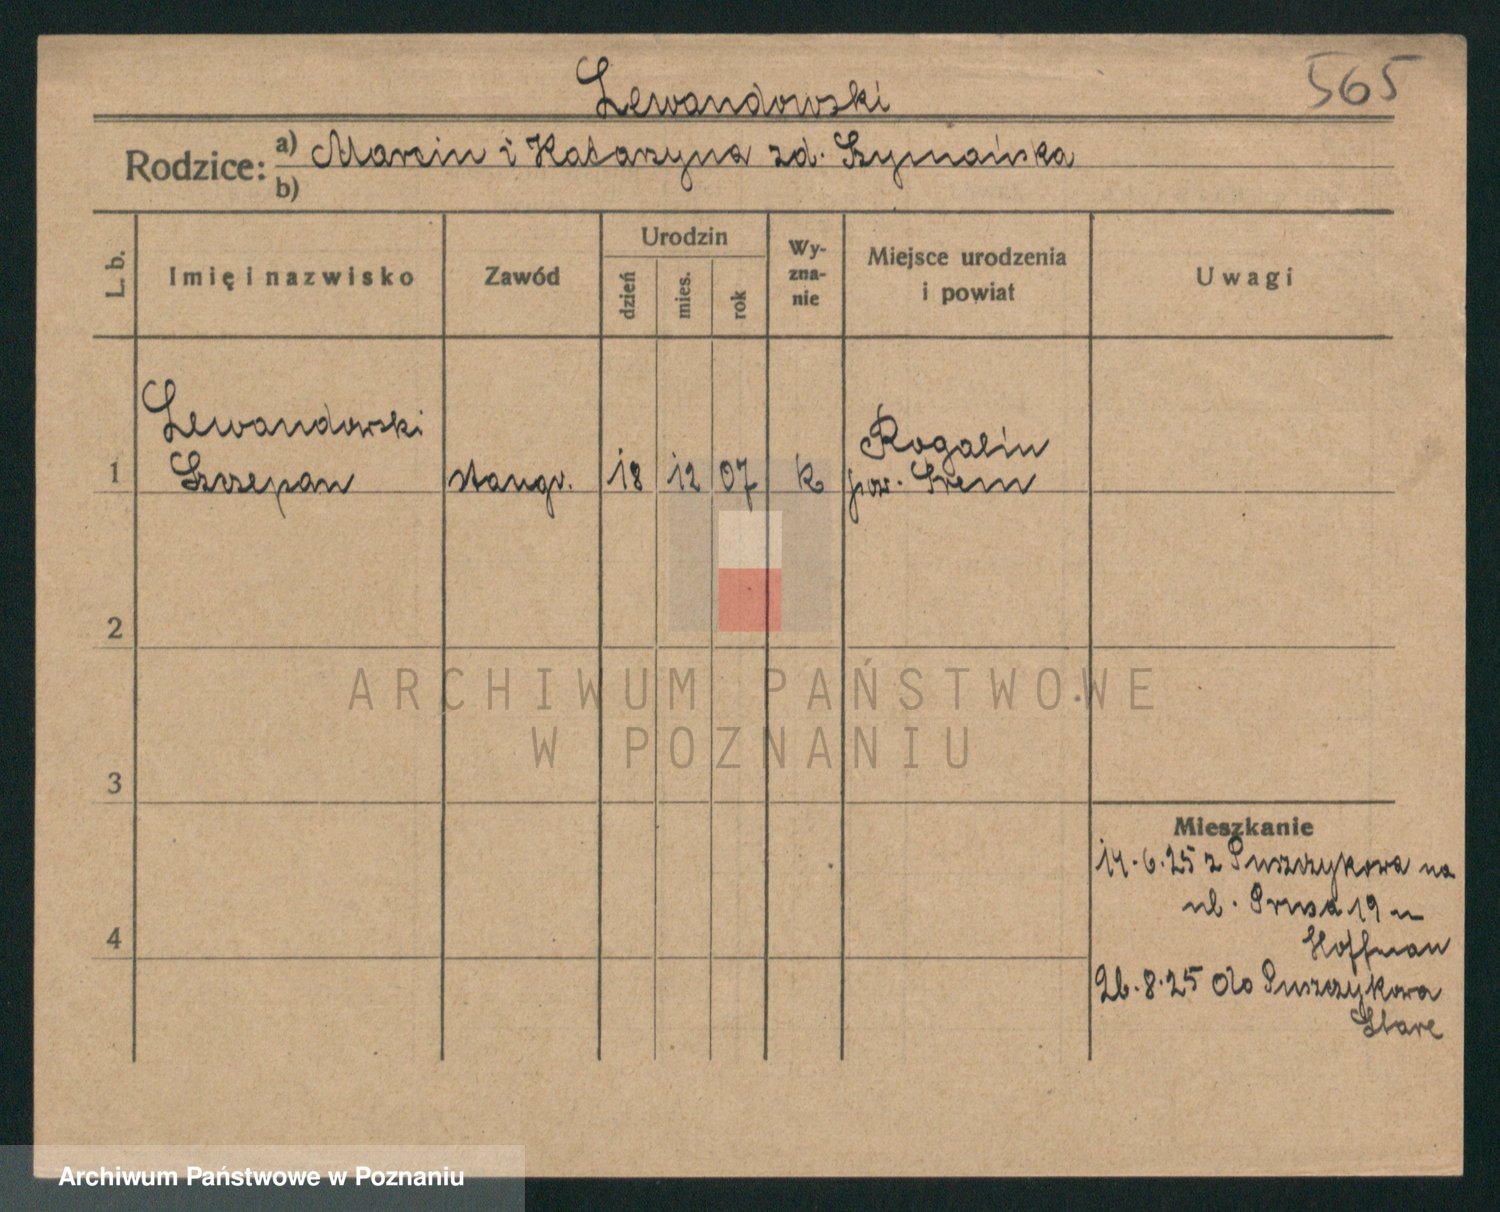 565
Lewandowski
Rodzice: a) Marcin i Katarzyna zd. Szymańska
b)
L. b.
Imię i nazwisko
Zawód
Urodzin
dzień
mies.
rok
Wy-
zna-
nie
Miejsce urodzenia
i powiat
Uwagi
Lewandowski
1 Szczepan
stangr. 18 12 07 k
Rogalin
pow. Śrem
2
3
4
Mieszkanie
14.6.25 z Puszczykowa na
ul. Prusa 19 u
Hoffman
26.8.25 do Puszczykowa
Stare
ARCHIWUM PAŃSTWOWE
W POZNANIU
Archiwum Państwowe w Poznaniu